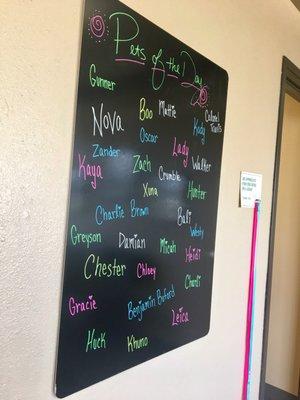 Pets of the Day
Gunner
Nova
Boo
Mattie
Colonel
Travis
Kody
Oscar
Zander
Lady
Kaya
Zach
Walker
Crumble
Xena
Hunter
Charlie Brown
Bali
Westy
Greyson
Damian
Micah
Heidi
Chester
Chloey
Charli
Gracie
Benjamin Buford
Leica
Huck